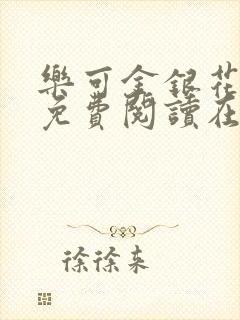 樂可金銀花
免費閱讀在
徐徐来